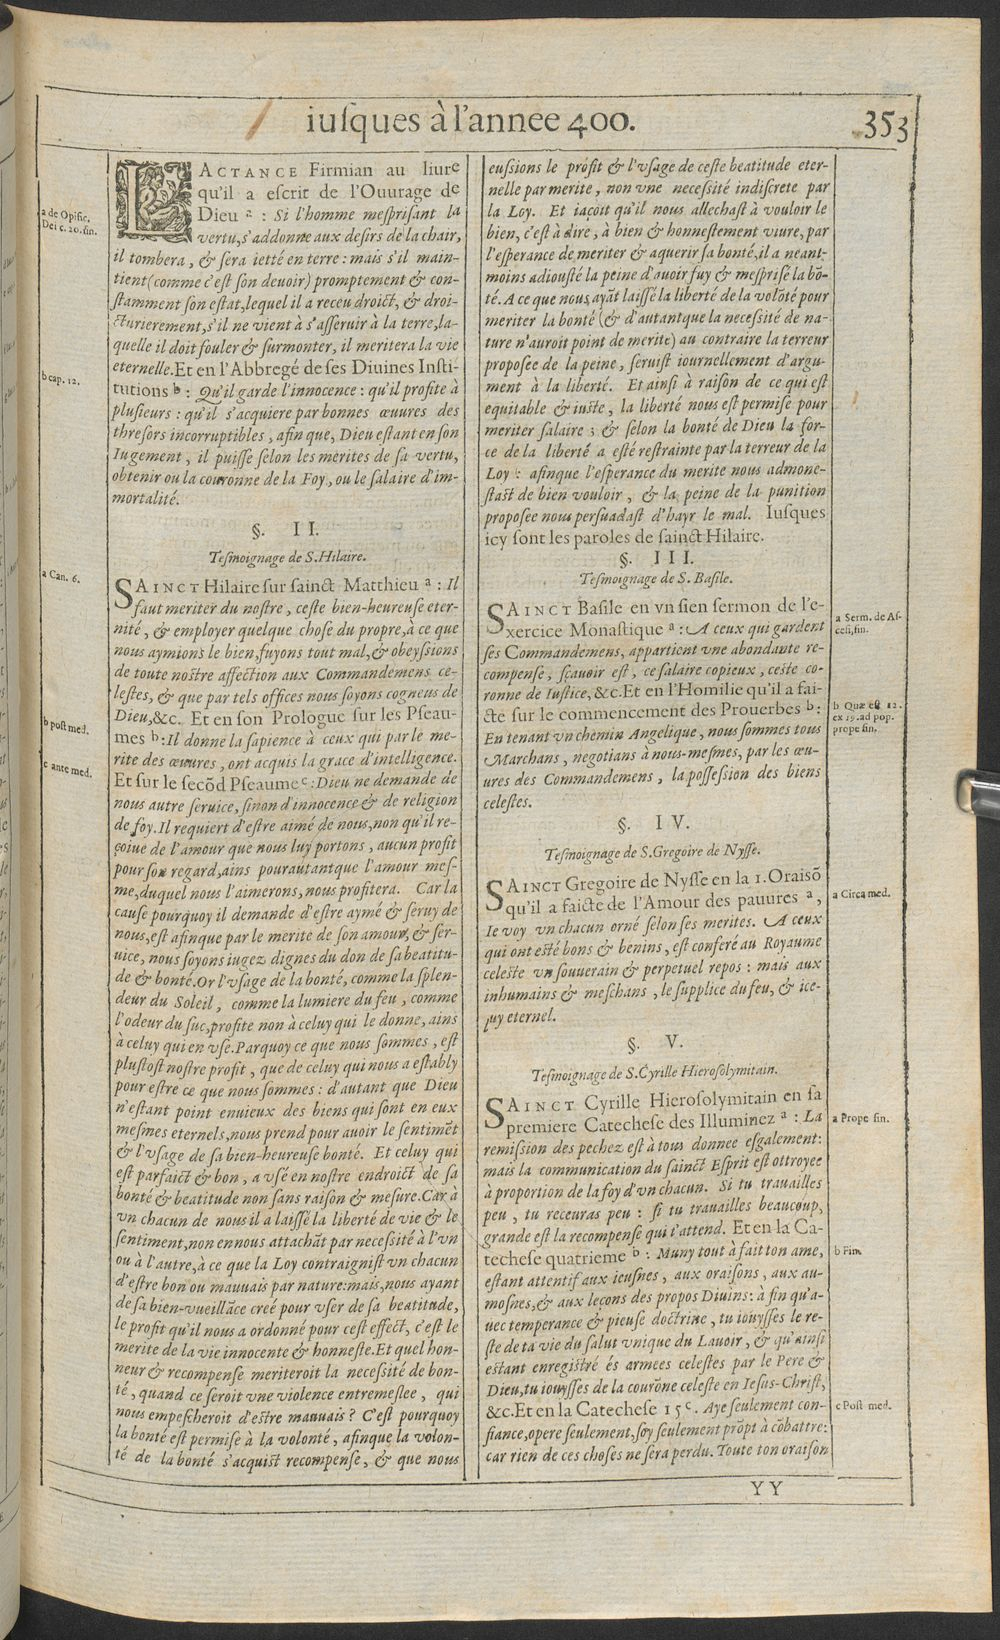 iuſques à l'annee 400.
353
LACTANCE Firmian au liure
qu'il a eſcrit de l'Ouurage de
Dieu ᵃ : Si l'homme meſpriſant la
vertu, s'addonne aux deſirs de la chair,
il tombera, & ſera ietté en terre : mais s'il main-
tient (comme c'eſt ſon deuoir) promptement & con-
ſtamment ſon eſtat, lequel il a receu droict, & droi-
cturierement, s'il ne vient à s'aſſeruir à la terre, la-
quelle il doit fouler & ſurmonter, il meritera la vie
eternelle. Et en l'Abbregé de ſes Diuines Inſti-
tutions ᵇ : Qu'il garde l'innocence : qu'il profite à
pluſieurs : qu'il s'acquiere par bonnes œuures des
threſors incorruptibles, afin que, Dieu eſtant en ſon
Iugement, il puiſſe ſelon les merites de ſa vertu,
obtenir ou la couronne de la Foy, ou le ſalaire d'im-
mortalité.
a de Opific.
Dei c. 20. fin.
b cap. 12.
§. II.
Teſmoignage de S. Hilaire.
SAINCT Hilaire ſur ſainct Matthieu ᵃ : Il
faut meriter du noſtre, ceſte bien-heureuſe eter-
nité, & employer quelque choſe du propre, à ce que
nous aymions le bien, fuyons tout mal, & obeyſsions
de toute noſtre affection aux Commandemens ce-
leſtes, & que par tels offices nous ſoyons cogneus de
Dieu, &c. Et en ſon Prologue ſur les Pſeau-
mes ᵇ : Il donne la ſapience à ceux qui par le me-
rite des œuures, ont acquis la grace d'intelligence.
Et ſur le ſecõd Pſeaume ᶜ : Dieu ne demande de
nous autre ſeruice, ſinon d'innocence & de religion
de foy. Il requiert d'eſtre aimé de nous, non qu'il re-
çoiue de l'amour que nous luy portons, aucun profit
pour ſon regard, ains pourautant que l'amour meſ-
me, duquel nous l'aimerons, nous profitera. Car la
cauſe pourquoy il demande d'eſtre aymé & ſeruy de
nous, eſt afin que par le merite de ſon amour, & ſer-
uice, nous ſoyons iugez dignes du don de ſa beatitu-
de & bonté. Or l'vſage de la bonté, comme la ſplen-
deur du Soleil, comme la lumiere du feu, comme
l'odeur du ſuc, profite non à celuy qui le donne, ains
à celuy qui en vſe. Parquoy ce que nous ſommes, eſt
pluſtoſt noſtre profit, que de celuy qui nous a eſtably
pour eſtre ce que nous ſommes : d'autant que Dieu
n'eſtant point enuieux des biens qui ſont en eux
meſmes eternels, nous prend pour auoir le ſentimẽt
& l'vſage de ſa bien-heureuſe bonté. Et celuy qui
eſt parfaict & bon, a vſé en noſtre endroict de ſa
bonté & beatitude non ſans raiſon & meſure. Car à
vn chacun de nous il a laiſſé la liberté de vie & le
ſentiment, non en nous attachãt par neceſsité à l'vn
ou à l'autre, à ce que la Loy contraigniſt vn chacun
d'eſtre bon ou mauuais par nature: mais, nous ayant
de ſa bien-vueillãce creé pour vſer de ſa beatitude,
le profit qu'il nous a ordonné pour ceſt effect, c'eſt le
merite de la vie innocente & honneſte. Et quel hon-
neur & recompenſe meriteroit la neceſsité de bon-
té, quand ce ſeroit vne violence entremeſlee, qui
nous empeſcheroit d'eſtre mauuais? C'eſt pourquoy
la bonté eſt permiſe à la volonté, afinque la volon-
té de la bonté s'acquiſt recompenſe, & que nous
a Can. 6.
b poſt med.
c ante med.
euſsions le profit & l'vſage de ceſte beatitude eter-
nelle par merite, non vne neceſsité indiſcrete par
la Loy. Et iaçoit qu'il nous allechaſt à vouloir le
bien, c'eſt à dire, à bien & honneſtement viure, par
l'eſperance de meriter & aquerir ſa bonté, il a neant-
moins adiouſté la peine d'auoir fuy & meſpriſé la bõ-
té. A ce que nous, ayãt laiſſé la liberté de la volõté pour
meriter la bonté (& d'autant que la neceſsité de na-
ture n'auroit point de merite) au contraire la terreur
propoſee de la peine, ſeruiſt iournellement d'argu-
ment à la liberté. Et ainſi à raiſon de ce qui eſt
equitable & iuſte, la liberté nous eſt permiſe pour
meriter ſalaire ; & ſelon la bonté de Dieu la for-
ce de la liberté a eſté reſtrainte par la terreur de la
Loy : afinque l'eſperance du merite nous admone-
ſtaſt de bien vouloir, & la peine de la punition
propoſee nous perſuadaſt d'hayr le mal. Iuſques
icy ſont les paroles de ſainct Hilaire.
§. III.
Teſmoignage de S. Baſile.
SAINCT Baſile en vn ſien ſermon de l'e-
xercice Monaſtique ᵃ : A ceux qui gardent
ſes Commandemens, appartient vne abondante re-
compenſe, ſçauoir eſt, ce ſalaire copieux, ceſte co-
ronne de Iuſtice, &c. Et en l'Homilie qu'il a fai-
cte ſur le commencement des Prouerbes ᵇ :
En tenant vn chemin Angelique, nous ſommes tous
Marchans, negotians à nous-meſmes, par les œu-
ures des Commandemens, la poſſeſsion des biens
celeſtes.
a Serm. de Aſ-
ceſi, fin.
b Quæ eſt 12.
ex 19. ad pop.
prope fin.
§. IV.
Teſmoignage de S. Gregoire de Nyſſe.
SAINCT Gregoire de Nyſſe en la 1. Oraisõ
qu'il a faicte de l'Amour des pauures ᵃ,
Ie voy vn chacun orné ſelon ſes merites. A ceux
qui ont eſté bons & benins, eſt conferé au Royaume
celeſte vn ſouuerain & perpetuel repos : mais aux
inhumains & meſchans, le ſupplice du feu, & ice-
luy eternel.
a Circa med.
§. V.
Teſmoignage de S. Cyrille Hieroſolymitain.
SAINCT Cyrille Hieroſolymitain en ſa
premiere Catecheſe des Illuminez ᵃ : La
remiſsion des pechez eſt à tous donnee eſgalement:
mais la communication du ſainct Eſprit eſt ottroyee
à proportion de la foy d'vn chacun. Si tu trauailles
peu, tu receuras peu : ſi tu trauailles beaucoup,
grande eſt la recompenſe qui t'attend. Et en la Ca-
techeſe quatrieme ᵇ : Muny tout à fait ton ame,
eſtant attentif aux ieuſnes, aux oraiſons, aux au-
moſnes, & aux leçons des propos Diuins: à fin qu'a-
uec temperance & pieuſe doctrine, tu iouyſſes le re-
ſte de ta vie du ſalut vnique du Lauoir, & qu'ainſi
eſtant enregiſtré és armees celeſtes par le Pere &
Dieu, tu iouyſſes de la courõne celeſte en Ieſus-Chriſt,
&c. Et en la Catecheſe 15 ᶜ. Aye ſeulement con-
fiance, opere ſeulement, ſoy ſeulement prõpt à cõbattre:
car rien de ces choſes ne ſera perdu. Toute ton oraiſon
a Prope fin.
b Fin.
c Poſt med.
YY